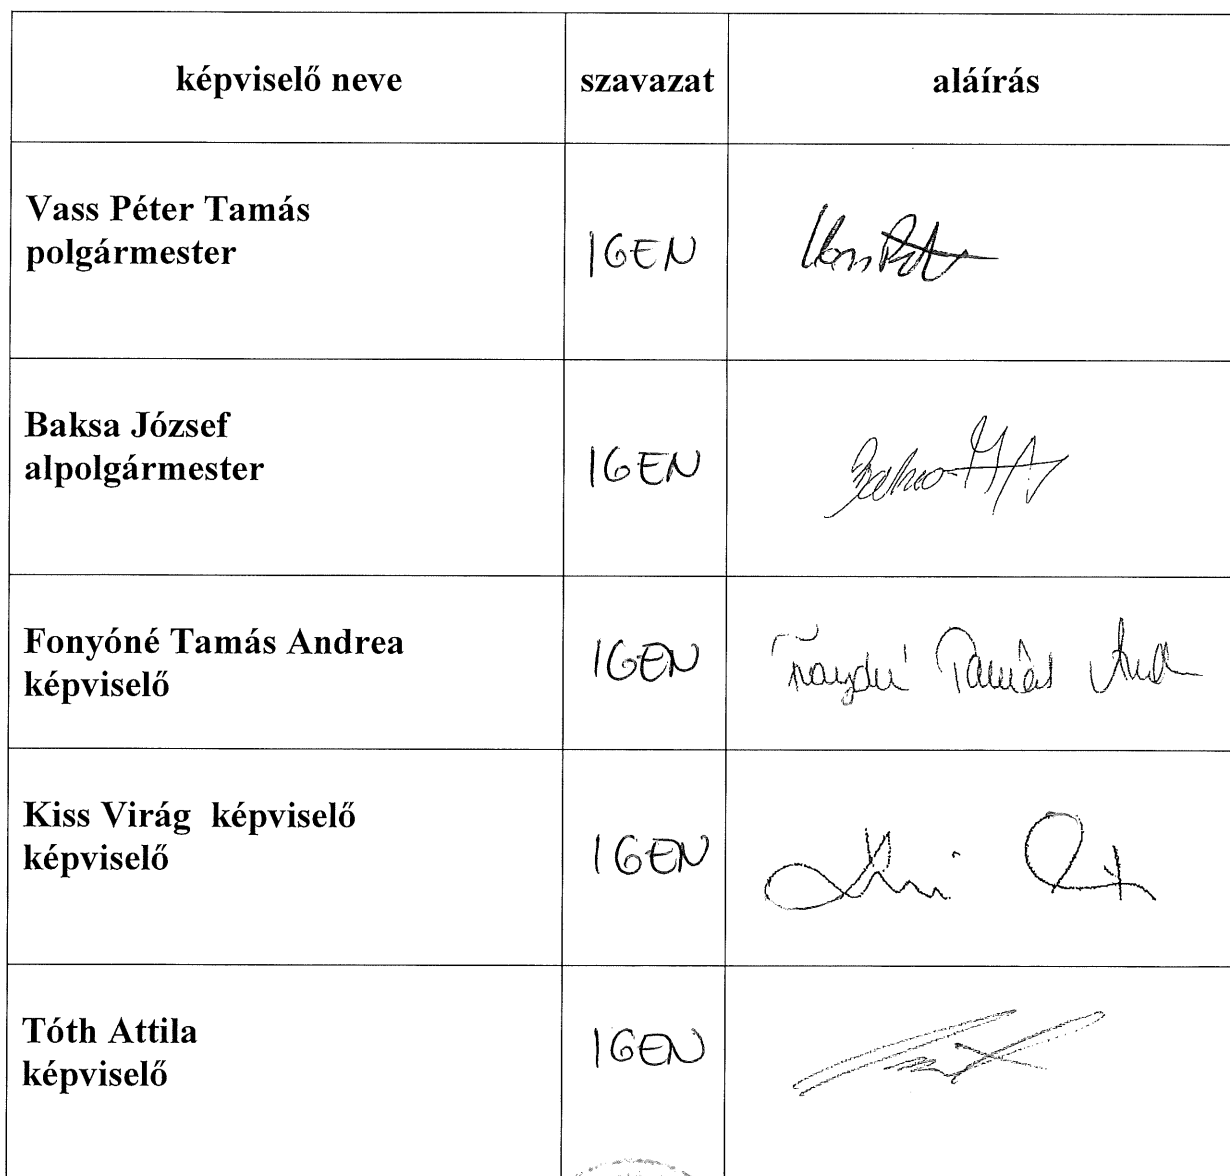 képviselő neve szavazat aláírás
Vass Péter Tamás
polgármester
IGEN
Baksa József
alpolgármester
IGEN
Fonyóné Tamás Andrea
képviselő
IGEN
Tamás
Kiss Virág képviselő
képviselő
IGEN
Tóth Attila
képviselő
IGEN